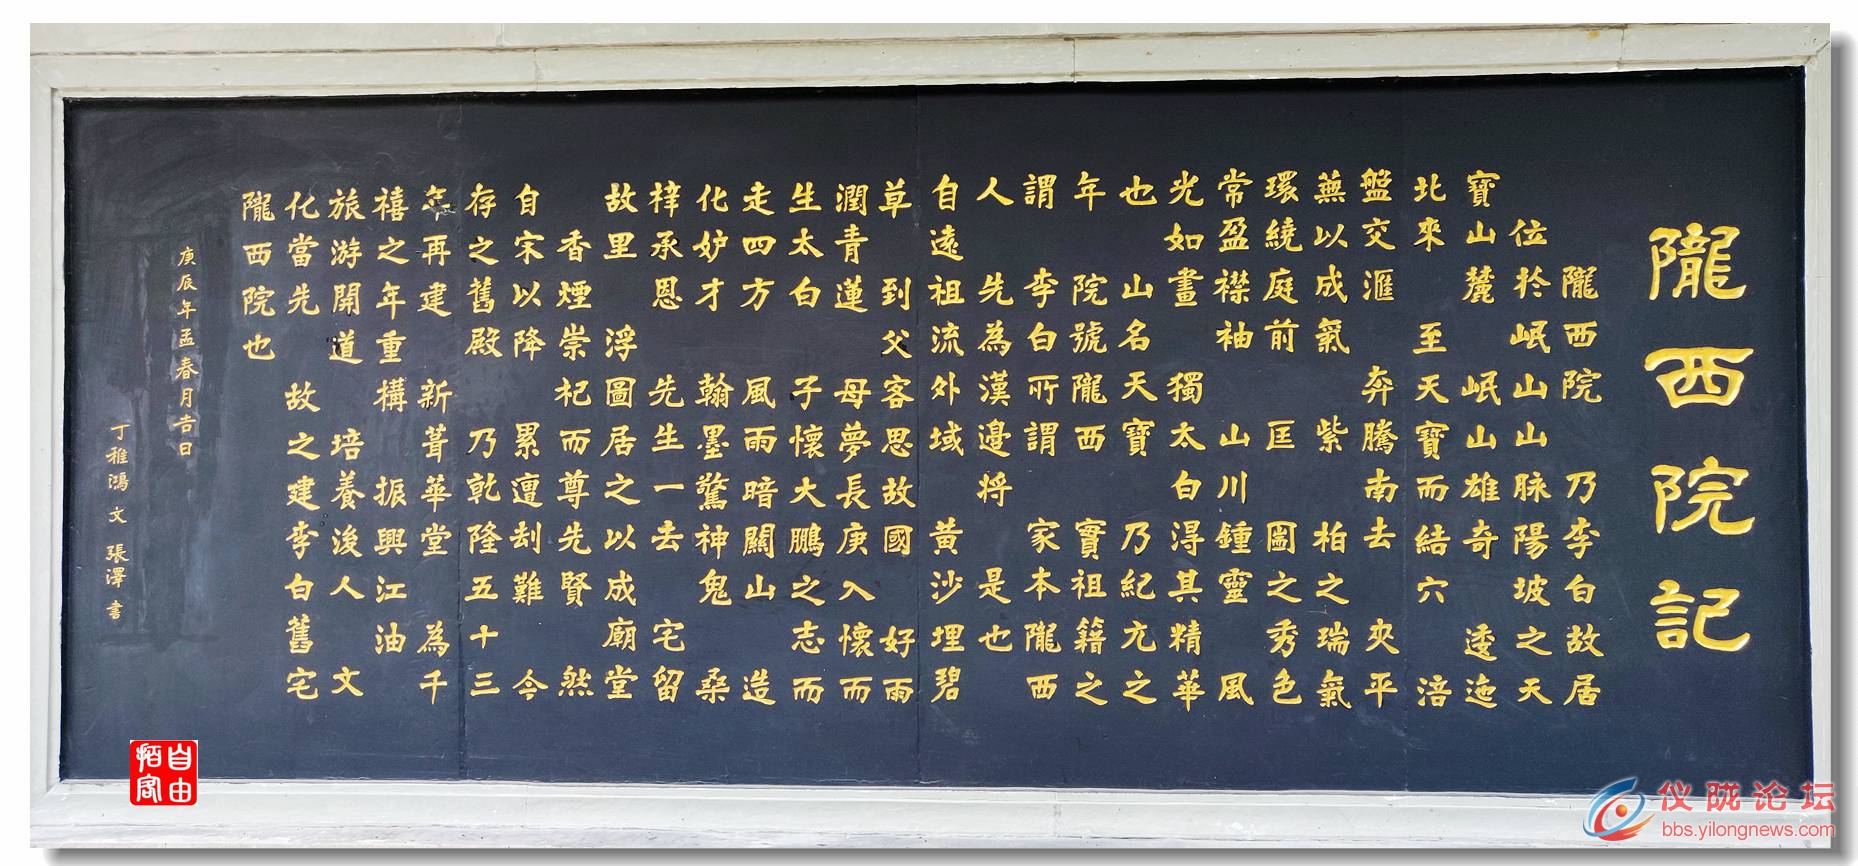 隴西院記
隴西院 乃李白故居
位於岷山山脉陽坡之天
寶山麓 岷山雄奇 逶迤
北來 至天寶而結穴 涪
盤交滙 奔騰南去 夾平
蕪以成氣 紫 柏之瑞氣
環繞庭前 匡 圖之秀色
常盈襟袖 山川鍾靈 風
光如畫 獨太白得其精華
也 山名天寶 乃紀亢之
年 院號隴西 實祖籍之
謂 李白所謂 家本隴西
人 先為漢邊將 是也
自遠祖流外域 黄沙埋碧
草 到父客思故國 好雨
潤青蓮 母夢長庚入懷而
生太白 子懷大鵬之志而
走四方 風雨暗關山 造
化妒才 翰墨驚神鬼 桑
梓承恩 先生一去 宅留
故里 浮圖居之以成廟堂
香煙崇杞而尊先賢 然
自宋以降 累遭刼難 今
存之舊殿 乃乾隆五十三
年再建 新葺華堂 為千
禧之年重構 振興江油
旅游開道 培養後人 文
化當先 故之建李白舊宅
隴西院也
庚辰年孟春月吉日
丁稚鴻文 張澤書
自由
拍客
仪陇论坛
bbs.yilongnews.com